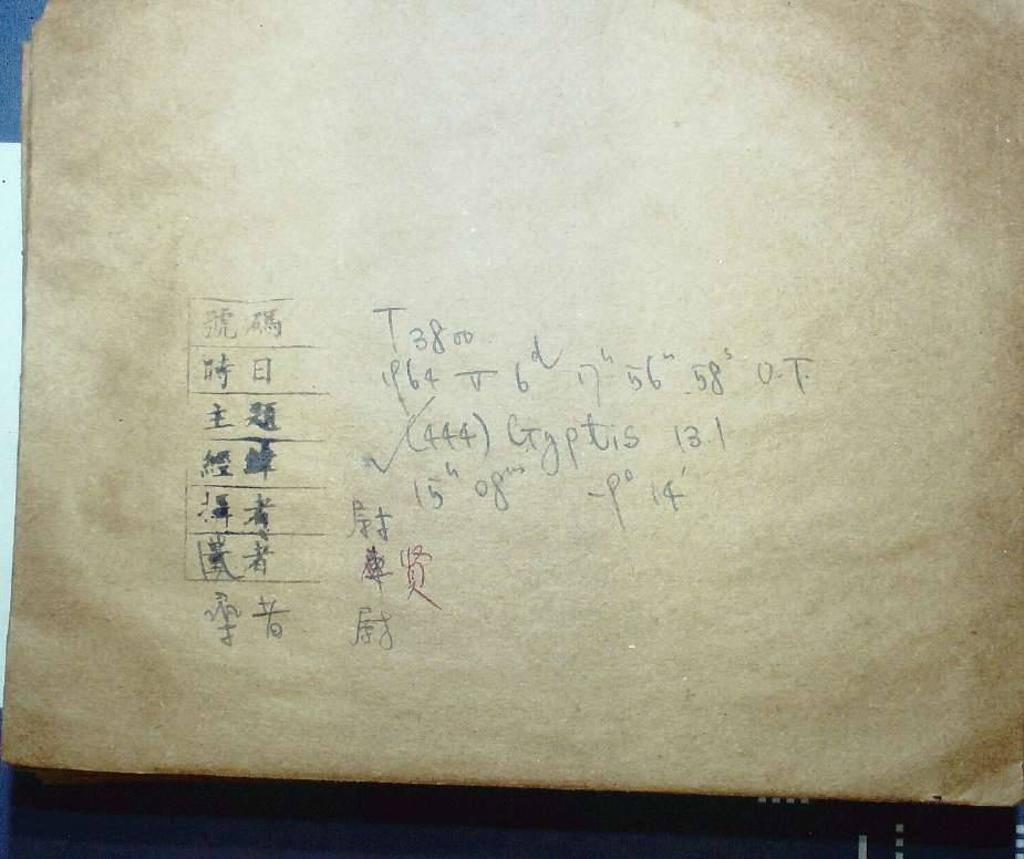 號碼 T 3800
時日 1964 V 6ᵈ 17ʰ 56ᵐ 58ˢ U.T.
主題 ✓(444) Gyptis 13.1
經緯 15ʰ 08ᵐ -9° 14′
攝者 尉
者 賢
者 尉